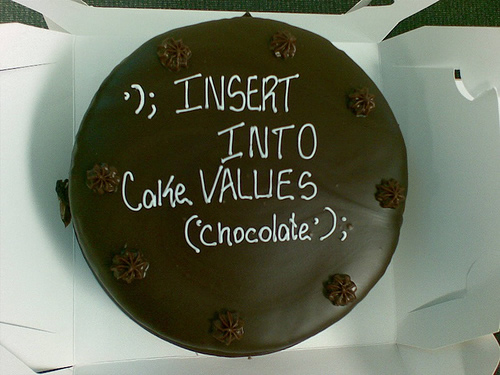 '); INSERT
INTO
Cake VALUES
('chocolate');